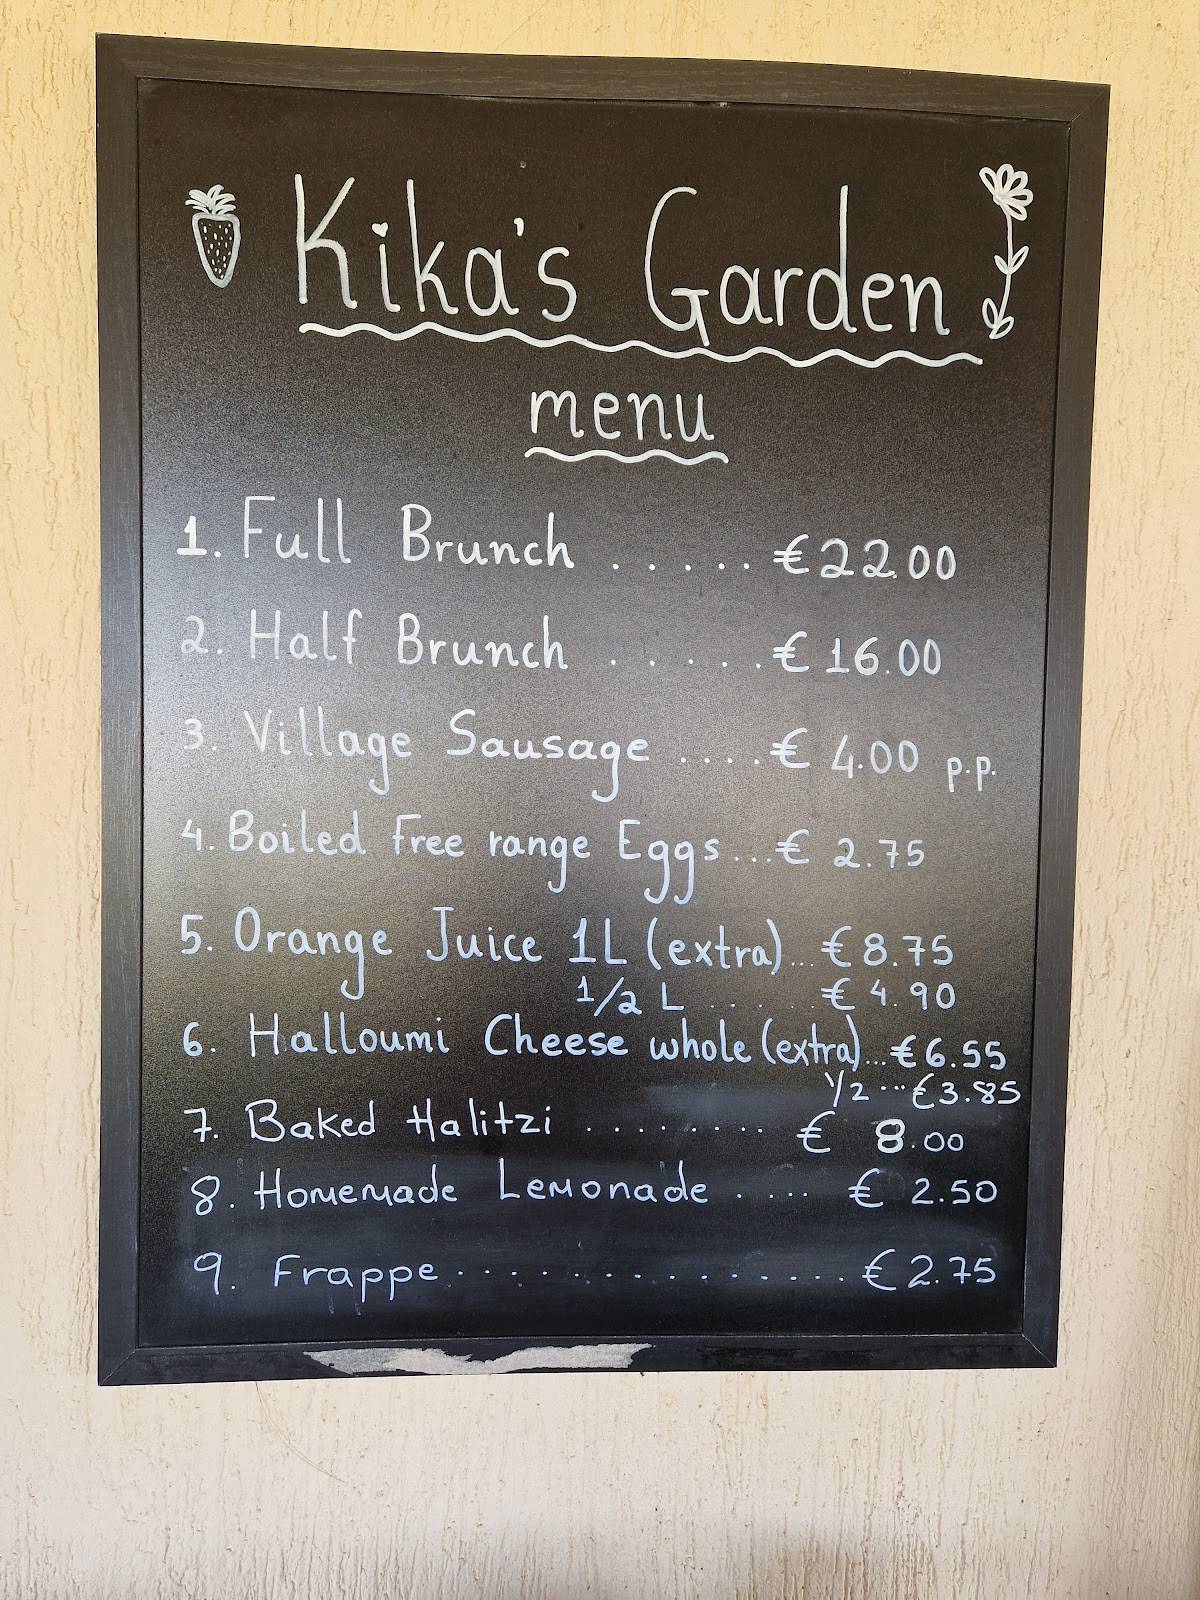 Kika's Garden
menu
1. Full Brunch ..... €22.00
2. Half Brunch ..... €16.00
3. Village Sausage .... € 4.00 p.p.
4. Boiled Free range Eggs...€ 2.75
5. Orange Juice 1L (extra)...€ 8.75
1/2 L ...... € 4.90
6. Halloumi Cheese whole (extra)...€6.55
1/2 ...€3.85
7. Baked Halitzi ......... € 8.00
8. Homemade Lemonade ..... € 2.50
9. Frappe ............... € 2.75